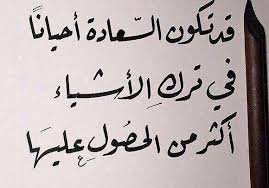 قد تكون السّعادة أحيانًا
في تركِ الأشياء
أكثر من الحصُول عليهَا